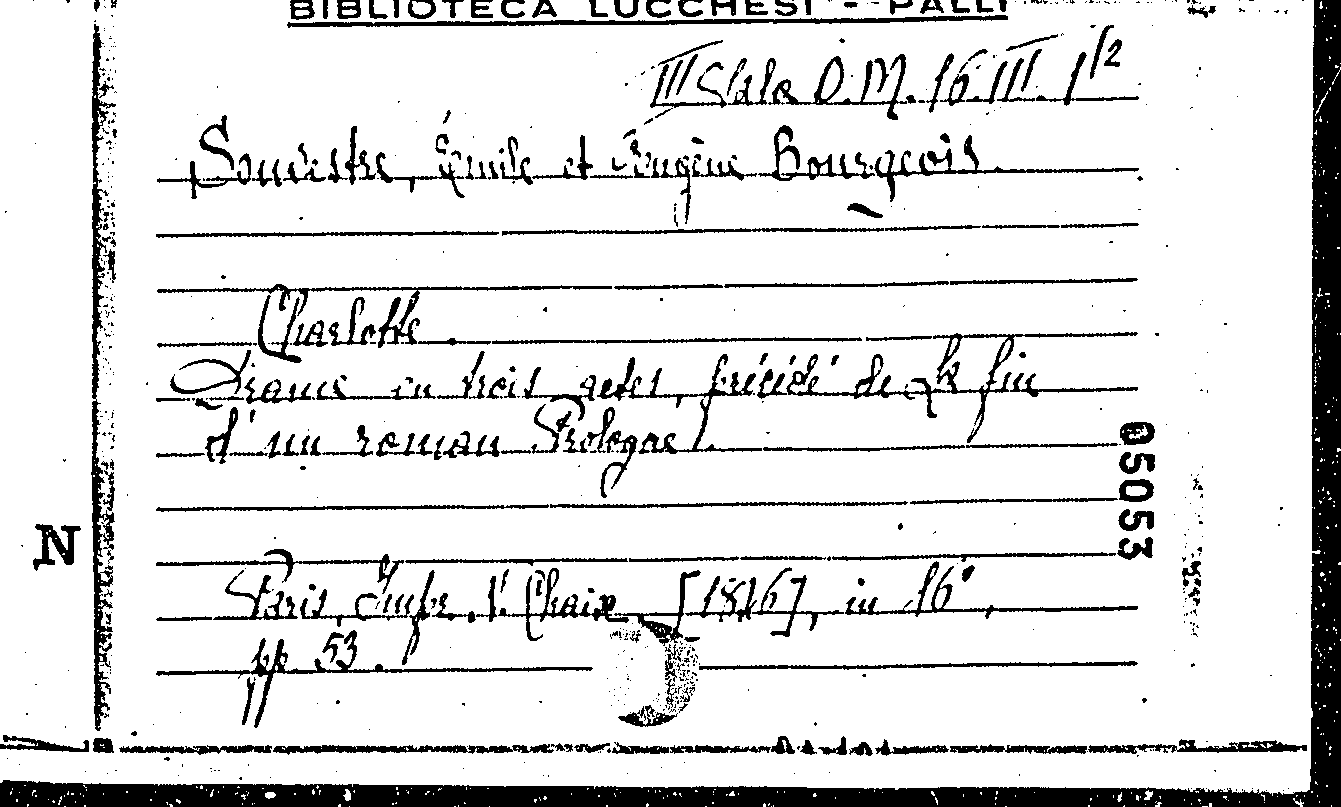 BIBLIOTECA LUCCHESI - PALLI
III Sala O.M. 16.III. 1/2
Souvestre, Émile et Eugène Bourgeois.
Charlotte.
Drame en trois actes, précédé de La fin
d'un roman Prologue /.
Paris, Impr. Chaix, [1846], in 16°,
pp. 53.
05053
N